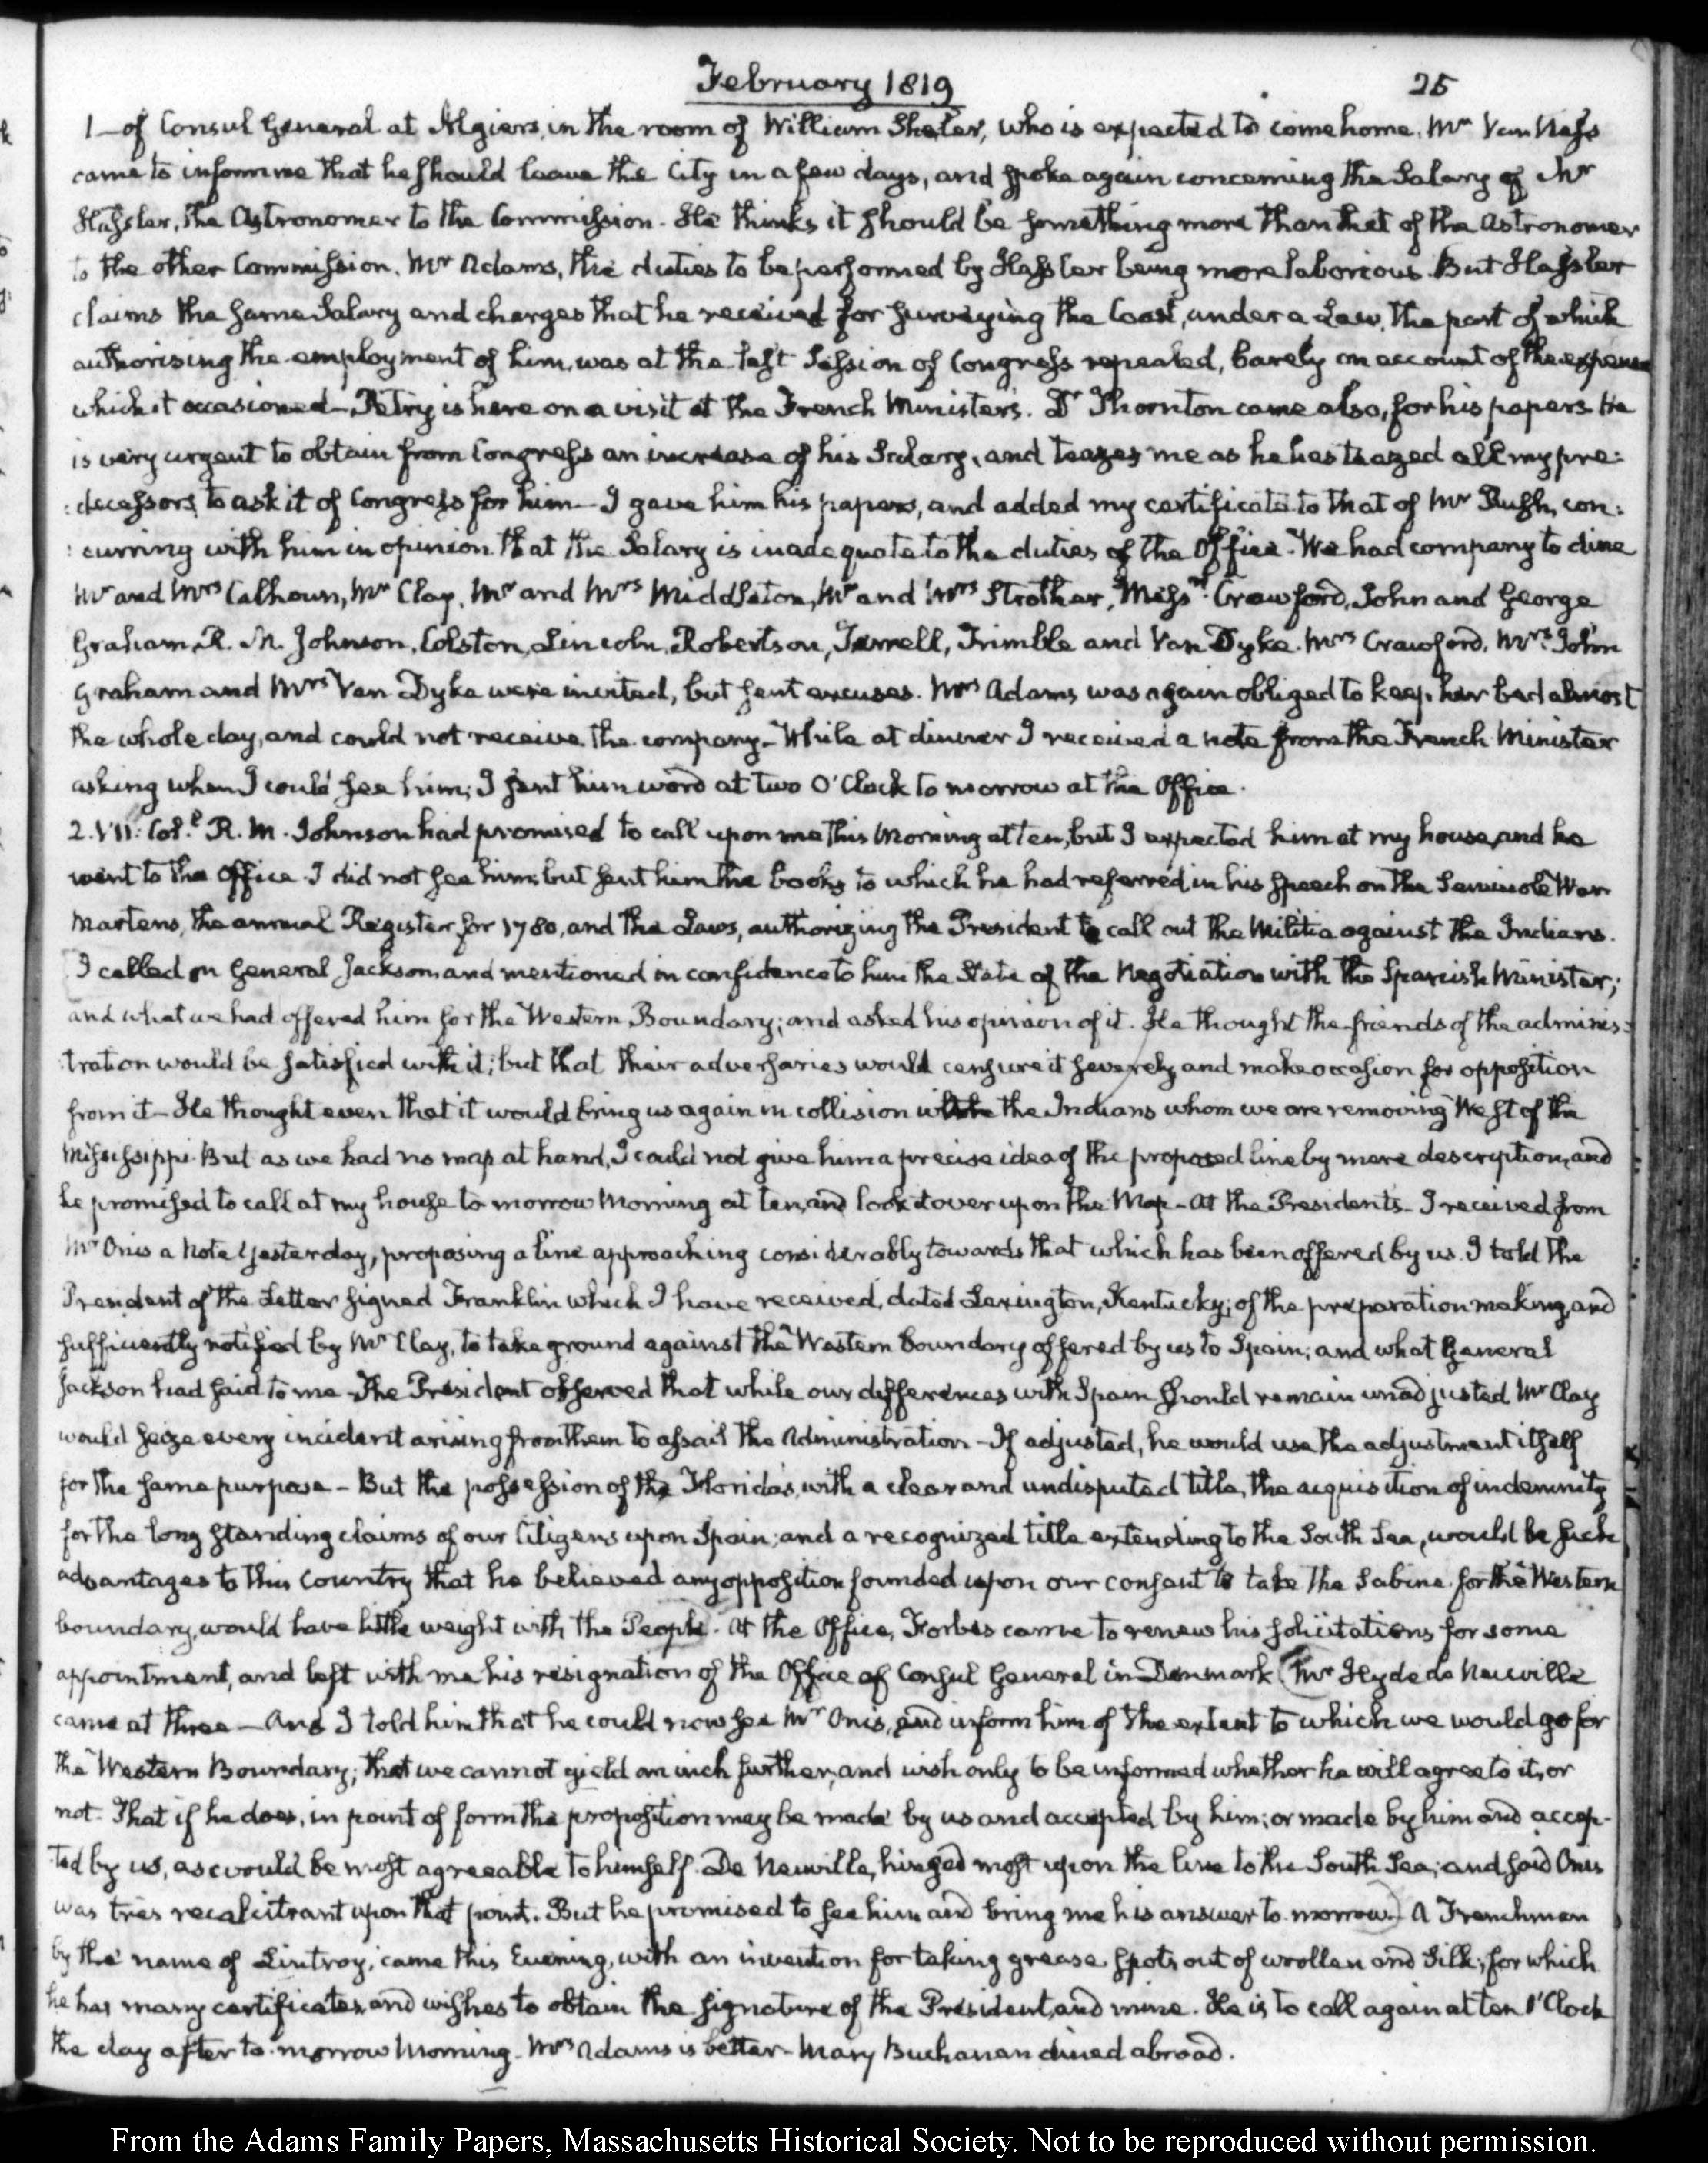 February 1819
25
1 - of Consul General at Algiers, in the room of William Shaler, who is expected to come home. Mr Van Ness
came to inform me that he should leave the City in a few days, and spoke again concerning the Salary of Mr
Hassler, the Astronomer to the Commission. He thinks it should be something more than that of the Astronomer
to the other Commission, Mr Adams, the duties to be performed by Hassler being more laborious. But Hassler
claims the same Salary and charges that he received for surveying the Coast, under a Law, the part of which
authorising the employment of him, was at the last Session of Congress repealed, barely on account of the expense
which it occasioned - Petry is here on a visit at the French Minister's. Dr Thornton came also, for his papers. He
is very urgent to obtain from Congress an increase of his Salary, and teazes me as he has teazed all my pre-
:decessors, to ask it of Congress for him - I gave him his papers, and added my certificate to that of Mr Rush, con:
:curring with him in opinion that the Salary is inadequate to the duties of the Office - We had company to dine
Mr and Mrs Calhoun, Mr Clay, Mr and Mrs Middleton, Mr and Mrs Strother, Messrs Crawford, John and George
Graham, R. M. Johnson, Colston, Lincoln, Robertson, Terrell, Trimble and Van Dyke. Mrs Crawford, Mrs John
Graham and Mrs Van Dyke were invited, but sent excuses. Mrs Adams was again obliged to keep her bed almost
the whole day, and could not receive the company - While at dinner I received a note from the French Minister
asking when I could see him; I sent him word at two O'Clock to morrow at the Office.
2. VII: Col.l R. M. Johnson had promised to call upon me this Morning at ten, but I expected him at my house, and he
went to the Office. I did not see him; but sent him the books to which he had referred in his speech on the Seminole War
Martens, the annual Register for 1780, and the Laws, authorizing the President to call out the Militia against the Indians.
I called on General Jackson and mentioned in confidence to him the State of the Negotiation with the Spanish Minister;
and what we had offered him for the Western Boundary; and asked his opinion of it. He thought the friends of the adminis:
:tration would be satisfied with it; but that their adversaries would censure it severely, and make occasion for opposition
from it - He thought even that it would bring us again in collision with the Indians whom we are removing West of the
Mississippi. But as we had no map at hand, I could not give him a precise idea of the proposed line by mere description, and
he promised to call at my house to morrow Morning at ten, and look it over upon the Map - At the President's - I received from
Mr Onis a Note yesterday, proposing a line approaching considerably towards that which has been offered by us. I told the
President of the Letter signed Franklin which I have received, dated Lexington, Kentucky; of the preparation making, and
sufficiently notified by Mr Clay, to take ground against the Western boundary offered by us to Spain; and what General
Jackson had said to me - The President observed that while our differences with Spain should remain unadjusted Mr Clay
would seize every incident arising from them to assail the Administration - If adjusted, he would use the adjustment itself
for the same purpose - But the possession of the Floridas, with a clear and undisputed title, the acquisition of indemnity
for the long standing claims of our Citizens upon Spain; and a recognized title extending to the South Sea, would be such
advantages to this Country that he believed any opposition founded upon our consent to take the Sabine for the Western
boundary, would have little weight with the People. At the Office, Forbes came to renew his solicitations for some
appointment, and left with me his resignation of the Office of Consul General in Denmark (Mr Hyde de Neuville
came at three - And I told him that he could now see Mr Onis, and inform him of the extent to which we would go for
the Western Boundary; that we cannot yield an inch further, and wish only to be informed whether he will agree to it, or
not. That if he does, in point of form the proposition may be made by us and accepted by him; or made by him and accep-
:ted by us, as would be most agreeable to himself. De Neuville, hinged most upon the line to the South Sea; and said Onis
was très recalcitrant upon that point. But he promised to see him and bring me his answer to morrow.) A Frenchman
by the name of Lintroy, came this Evening, with an invention for taking grease spots out of woollen and Silk; for which
he has many certificates, and wishes to obtain the signature of the President, and mine. He is to call again at ten O'Clock
the day after to-morrow Morning. Mrs Adams is better - Mary Buchanan dined abroad.
From the Adams Family Papers, Massachusetts Historical Society. Not to be reproduced without permission.